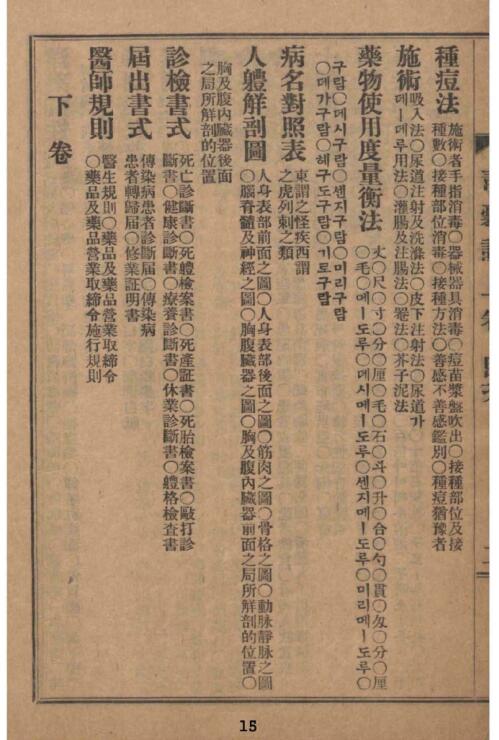 種痘法
施術者手指消毒○器械器具消毒○痘苗漿盤吹出○接種部位及接
種數○接種部位消毒○接種方法○善感不善感鑑別○種痘猶豫者
施術
吸入法○尿道注射及洗滌法○皮下注射法○尿道가
데ー데루用法○灌腸及注腸法○罨法○芥子泥法
藥物使用度量衡法
丈○尺○寸○分○厘○毛○石○斗○升○合○勺○貫○匁○分○厘
○毛○메ー도루○데시메ー도루○센지메ー도루○미리메ー도루○
구람○데시구람○센지구람○미리구람
○데가구람○헤구도구람○기로구람
病名對照表
東謂之怪疾西謂
之虎列剌之類
人軆觧剖圖
人身表部前面之圖○人身表部後面之圖○筋肉之圖○骨格之圖○動脉靜脉之圖
○腦脊髓及神經之圖○胸腹臟器之圖○胸及腹內臟器前面之局所觧剖的位置○
胸及腹內臟器後面
之局所觧剖的位置
診檢書式
死亡診斷書○死軆檢案書○死產証書○死胎檢案書○毆打診
斷書○健康診斷書○療養診斷書○休業診斷書○軆格檢查書
屆出書式
傳染病患者診斷屆○傳染病
患者轉歸屆○修業証明書
醫師規則
醫生規則○藥品及藥品營業取締令
○藥品及藥品營業取締令施行規則
下卷
15